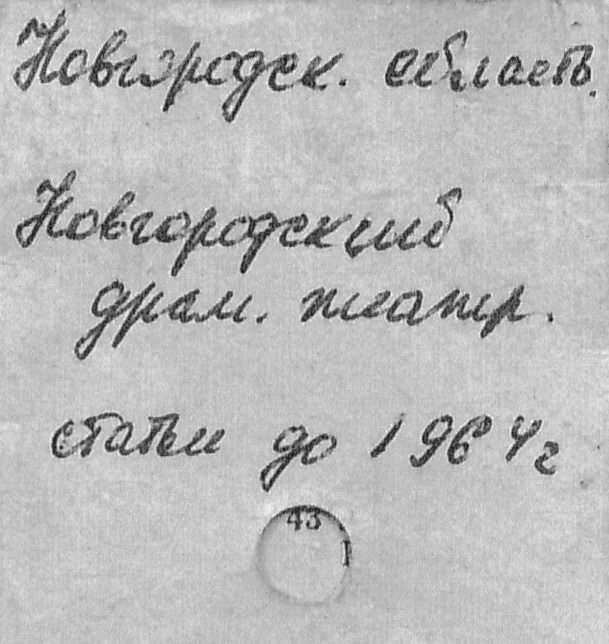 Новгородск. область.
Новгородский
драм. театр.
статьи до 1964 г
43